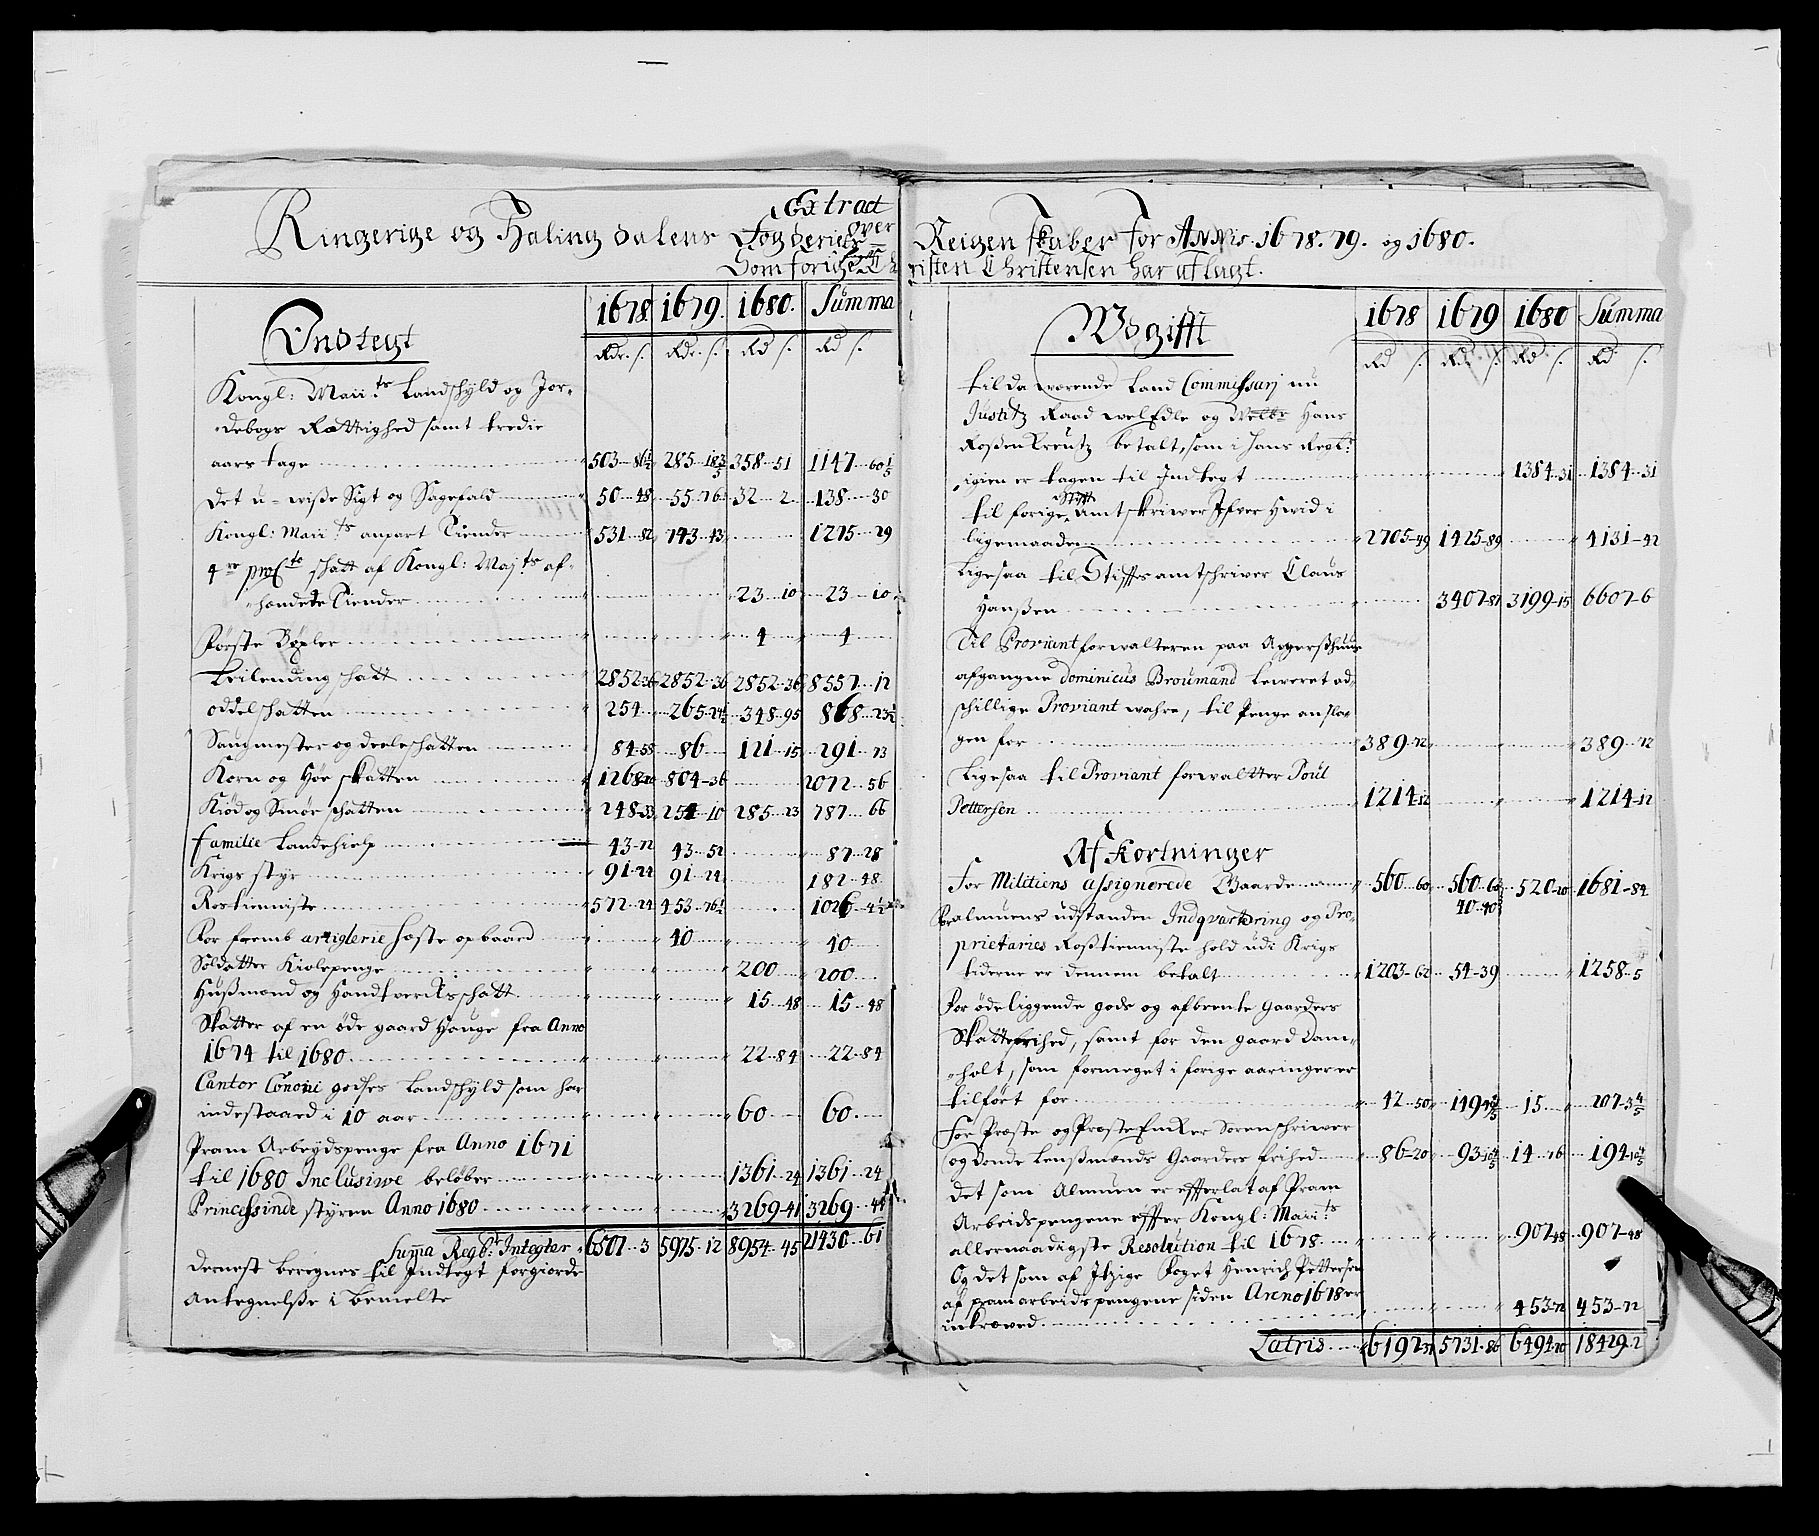 Extract over
Ringerige og Halingdalens Fogderiers Reigenskaber for Annis 1678. 79. og 1680.
Som forige Christen Christensen har aflagt.
Indtegt 1678. 1679. 1680. Summa
Rdr. s. Rdr. s. Rd s. Rd s.
Kongl: Maii:ts Landschyld og Jor-
debogs Rættighed samt tredie
aars tage 503 285 358 51 1147 60 1/5
Det u-wiße Sigt og Sagefald 50 48 55 76 32 2 138 30
Kongl: Maii:ts anpart Tiender 531 82 743 43 1275 29
4re proCto schatt af Kongl: Maj:ts af-
hændete Tiender 23 10 23 10
Første Bøxler 4 4
Leilending schatt 2852 36 2852 36 2852 36 8557 12
oddelschatten 254 265 24½ 348 95 868 23½
Saugmester og deeleschatten 84 55 86 121 15 291 73
Korn og Høe skatten 1268 20 804 36 2072 56
Kiød og Smør schatten 248 33 254 10 285 23 787 66
familie Landehielp 43 72 43 52 87 28
Krigs styr 91 24 91 24 182 48
Rostienniste 572 24 453 76½ 1026 4½
For fremb artiglerie hæste opbaard 40 40
Soldatter Kiolepenge 200 200
Hußmænd og Handtverchsschatt 15 48 15 48
Skatter af en øde gaard Hauge fra Anno
1674 til 1680 22 84 22 84
Cantor Cononi godses Landschyld som har
indestaaed i 10 aar 60 60
Pram Arbeydspenge fra Anno 1671
til 1680 Inclusiwe beløber 1361 24 1361 24
Princessinde styren Anno 1680 3269 41 3269 44
Suma Regb:s Integter 6507 3 5975 12 8954 45 21430 61
Dernest beregnes til Indtegt forgiorde
Antegnelße i bemelte
Wdgifft 1678 1679 1680 Summa
Rd s. Rd s. Rd s. Rd s.
til da wærende Land Commissarj nu
Justitz Raad welEdle og Welbr Hans
Roßenkreutz betalt, som i hans Regb:r
igien er tagen til Indtegt 1384 31 1384 31
til forige Stift Amtskriwer Ifver Hwid i
ligemaader 2705 49 1425 89 4131 42
Ligesaa til Stiftsamtschriver Claus
Hanßen 3407 87 3199 15 6607 6
Til Proviantforwalteren paa Aggerßhuus
afgangne Dominicus Broumand leweret ad-
schillige Proviant wahre, til Penge ansla-
gen for 389 72 389 72
Ligesaa til Proviant forwaltter Poul
Pettersen 1214 12 1214 12
Af Kortninger
for Militiens assignerede Gaarde 560 60 560 60 520 20 1681 84
40 40
For almuens udstanden Indqvartering og Pro-
prietaries Roßtienniste hold udi Krigs
tiderne er dennem betalt 1203 62 54 39 1258 5
For ødeliggende gods og afbrente Gaarders
Skattefrihed, samt for den gaard Dam-
holt, som formeget i forige aaringer er
tilført for 42 50 149 15 207 3 4/5
For Præste og Præste Enker Sorenschriwer
og Bønde Lensmænds Gaarders frihed 86 20 93 14 76 194
Det som Almuen er efterlat af Pram
Arbeidspengene efter Kongl: Maii:ts
allernaadigste Resolution til 1678 907 48 907 48
Og det som af Itzige Foget Henrich Pettersen
af pramarbeidspengene siden Anno 1678 er
inkræved 453 72 453 72
Latris 6192 37 5731 86 6494 70 18429 2